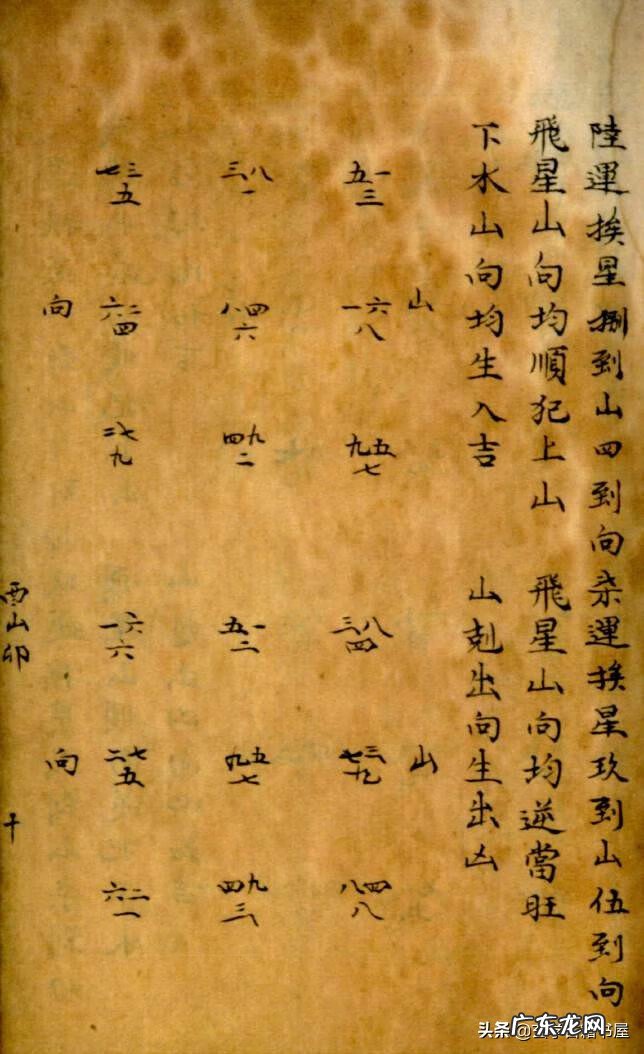 陸運挨星捌到山四到向
飛星山向均順犯上山
下水山向均生入吉
山
五一三
一六八
九五七
三八一
八四六
四九二
七三五
六二四
二七九
向
柒運挨星玖到山伍到向
飛星山向均逆當旺
山剋出向生出凶
山
三八四
七三九
八四八
五一二
九五七
四九三
一六六
二七五
六二一
向
酉山卯
十
头条
广东龙网
书屋